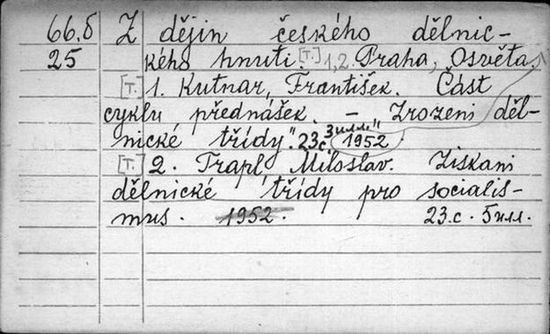 66.б Z dějin českého dělnic-
25 kého hnutí. [Т.] 1,2. Praha, Osvěta,
[Т.] 1. Kutnar, František. Část
cyklu přednášek. - Zrození děl-
nické třídy. 23с. 3 илл. 1952.
[Т.] 2. Trapl, Miloslav. Získání
dělnické třídy pro socialis-
mus. 1952. 23.с. 5 илл.